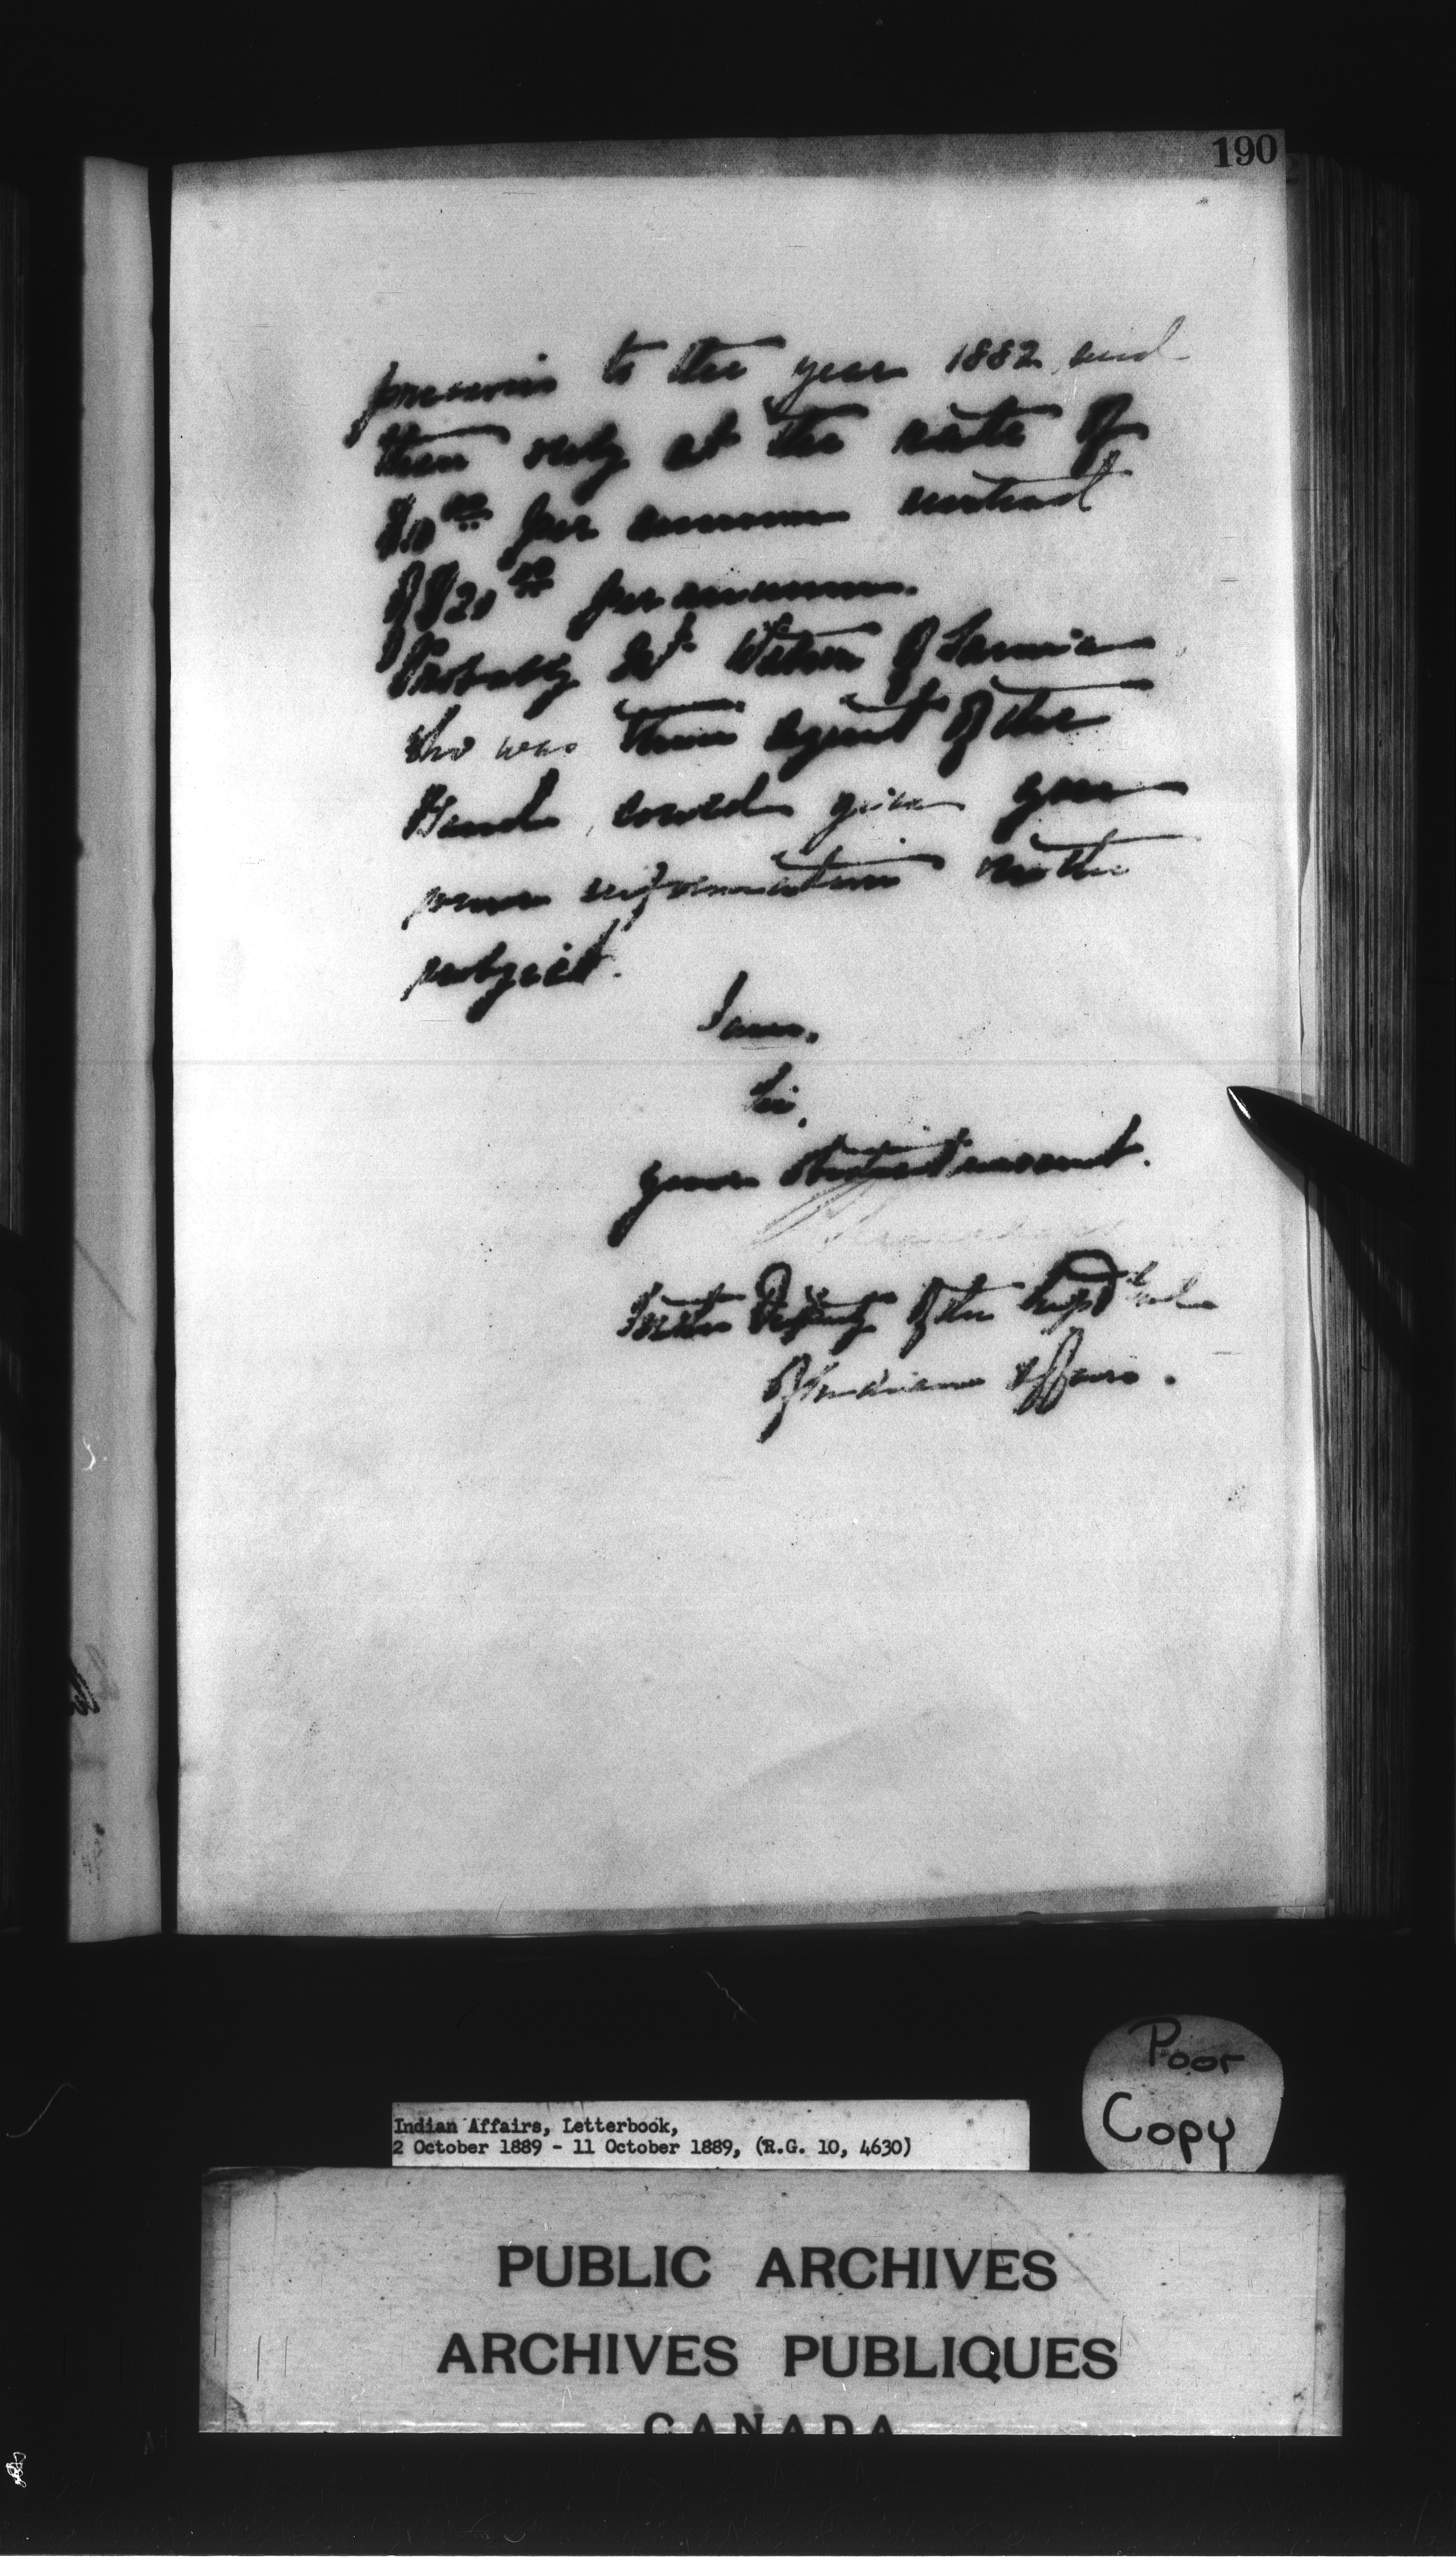 190
previous to the year 1882 and
then only at the rate of
$10.00 per annum instead
of $20.00 per annum.
Probably Mr Watson of Sarnia
who was then agent of the
Band, could give you
some information on the
subject.
I am,
Sir,
Your obedient servant.
For the Deputy of the Supt Genl
of Indian Affairs.
Poor
Copy
Indian Affairs, Letterbook,
2 October 1889 - 11 October 1889, (R.G. 10, 4630)
PUBLIC ARCHIVES
ARCHIVES PUBLIQUES
CANADA